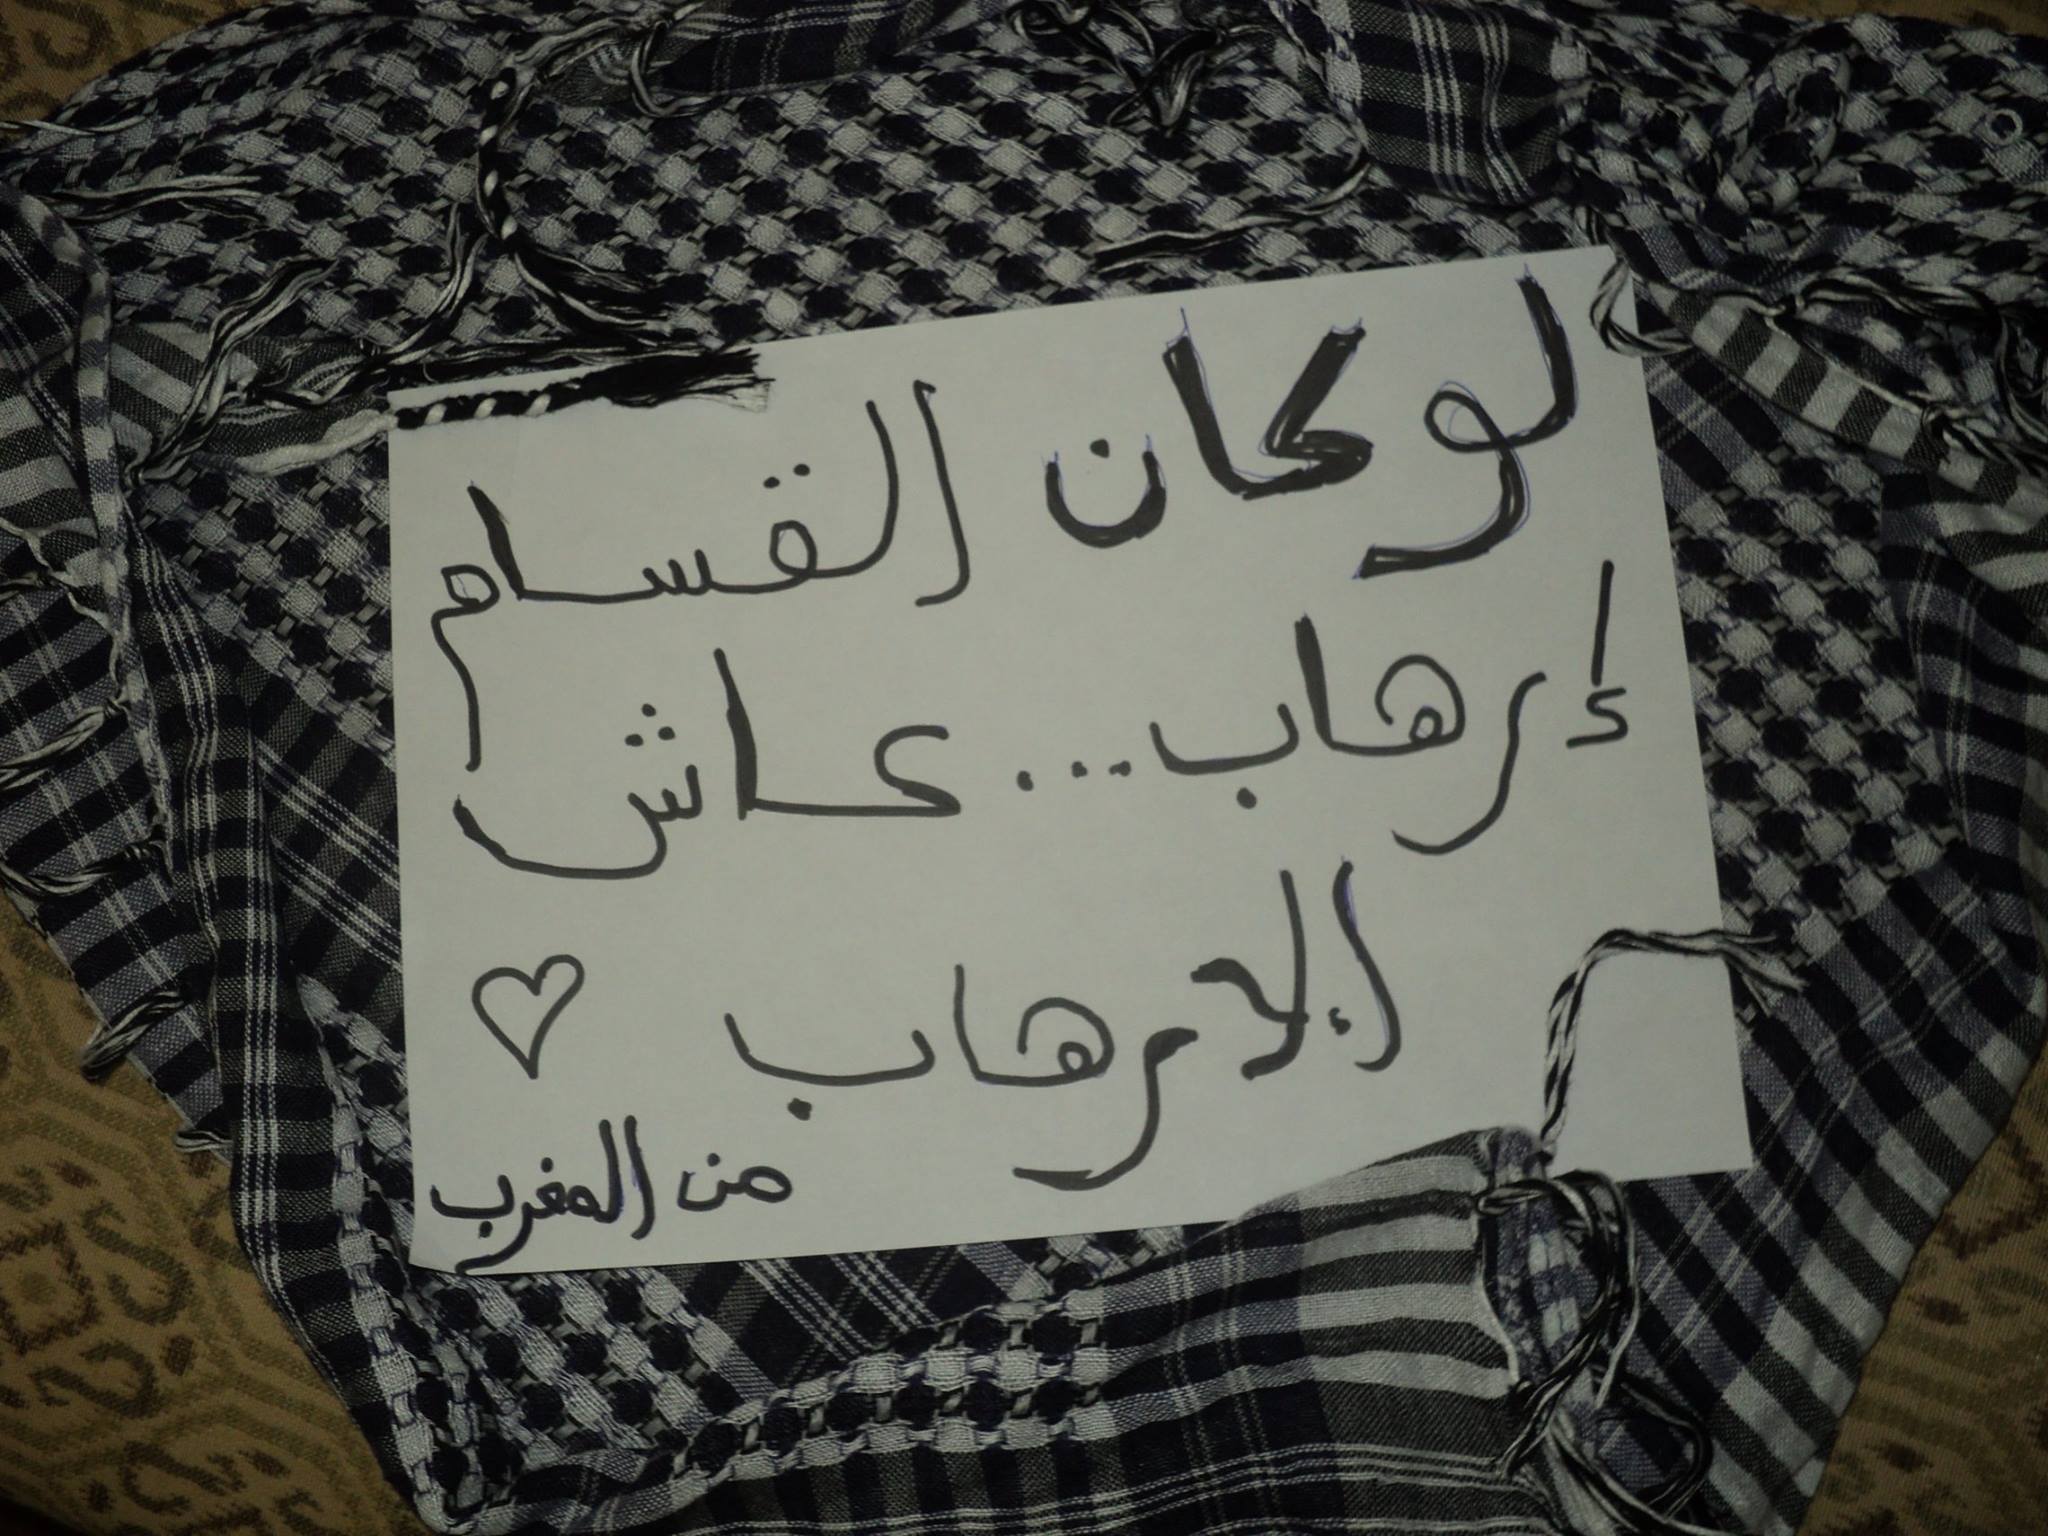 لو كان القسام
إرهاب... عاش
إلارهاب ♡
من المغرب